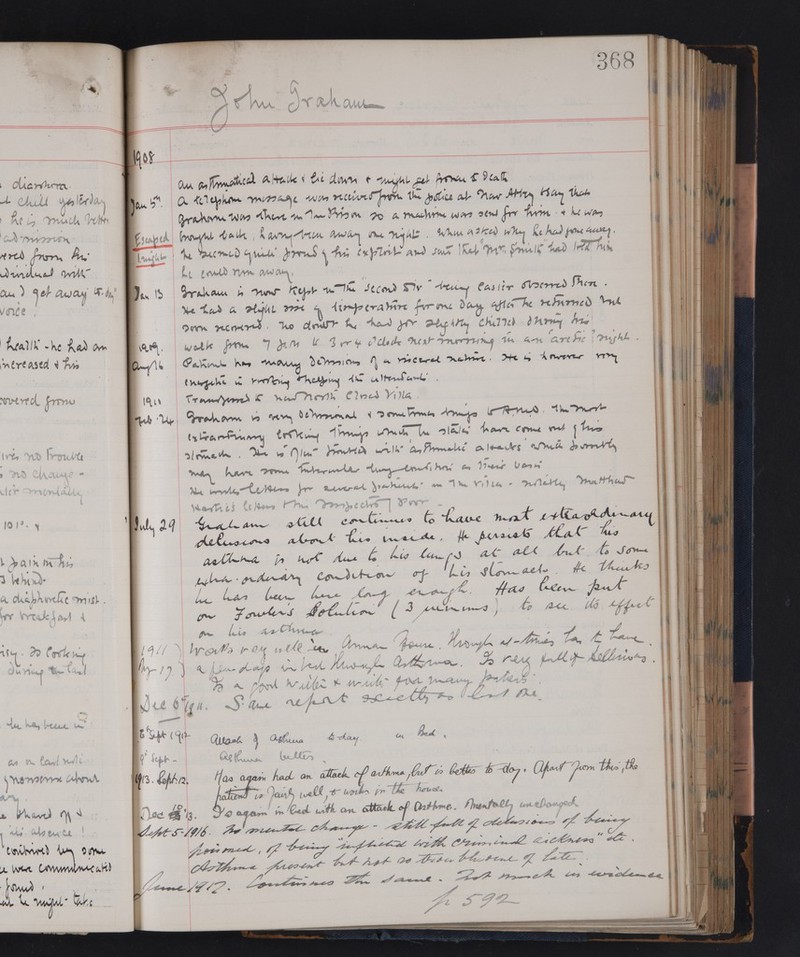 368
John Graham
1908
an asthmatical attack & lie down & might get frozen to death
Jan 5th. A telephone message was received from the police at New Abbey to say that
Graham was there in the Prison so a machine was sent for him & he was
Escaped brought back, having been away one night. When asked why he had gone away,
1 night he seemed quite proud of his exploits and said that Mr. Smith had told him
he could run away.
Jan 13 Graham is now kept in the second str being easier observed there.
He had a slight rise of temperature for one day after he returned but
soon recovered. no doubt he had got slightly chilled during his
walk from 7 p.m. to 3 or 4 o'clock next morning in an "arctic" night.
1909.
Aug 16 Patient has many delusions of a visceral nature. He is however very
energetic in working & helping the attendants.
Transferred to new North Closed Villa.
1911
Feb. 24 Graham is very delusional & sometimes brings to the most
extraordinary looking things which he states have come out of his
stomach. He is often troubled with "asthmatic attacks" which possibly
may have some tubercular lung condition as their basis
He writes letters for several patients in the Villa - notably Matthew
letters & the door.
July 29 Graham still continues to have most extraordinary
delusions about his inside. He persists that his
asthma is not due to his lungs at all but to some
extra-ordinary condition of his stomach. He thinks
he has been here long enough. Has been put
on Fowler's Solution (3 minims) to see its effect
on his asthma.
1911 Works very well in Annan House, though at times has to have
17 a few days in bed through Asthma. Is very full of delusions.
Is a good writer & writes for many patients.
Dec 6th 1911. Same report exactly as last one.
8th Sept 1912 Attack of asthma to-day. in Bed.
9th Sept - Asthma better.
1913. Sept. 12. Has again had an attack of asthma, but is better to-day. Apart from this, the
patient is fairly well, & works in the house.
Dec '13. Is again in bed with an attack of asthma. Mentally unchanged.
Sept 5-1916. No mental change - still full of delusions of being
poisoned, of being "inflicted with criminal sickness" etc.
Asthma present but not so troublesome of late.
June 1917. Continues the same. Not much in evidence
p 592
diarrhoea
chill yesterday
he is much better
admission
from his
individual with
and get away to-day
voice.
health - he had an
increased & his
covered from
no trouble
no change -
mentally
101°. &
pain in his
behind
a diaphoretic mist.
for breakfast &
Is looking
during the last
he has been in
as on last note
nonsense about
behaved
his absence!
contrived by some
were communicated
found,
he might take